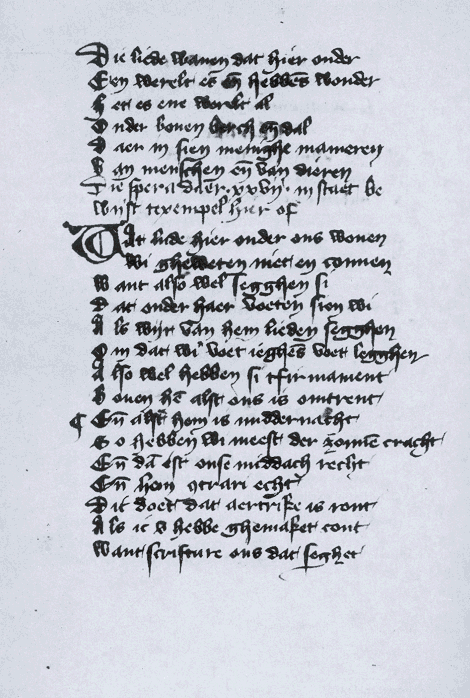 Die liede wanen dat hier onder
Een werelt es en̄ hebbēs wonder
Het es ene werelt al
Onder bouen berch en̄ dal
Daer in sien menighe manieren
Van menschen en̄ van dieren
Die spera daer .xxvij. in staet be
wijst texempel hier of
Wat liede hier onder ons wonen
Wi gheweten niet en connen
Want also wel segghen si
Dat onder haer voeten sien wi
Als wijt van hem lieden segghen
Om dat wi voet ieghēs voet legghen
Also wel hebben si tfirmament
Bouen hē alst ons is omtrent
¶ En̄ alst hem is middernacht
So hebben wi meest der zonnē cracht
En̄ dā est onse middach recht
En̄ hem ꝯtrari echt
Dit doet dat aertrike is ront
Als ic v hebbe ghemaket cont
Want scrifture ons dat seghet